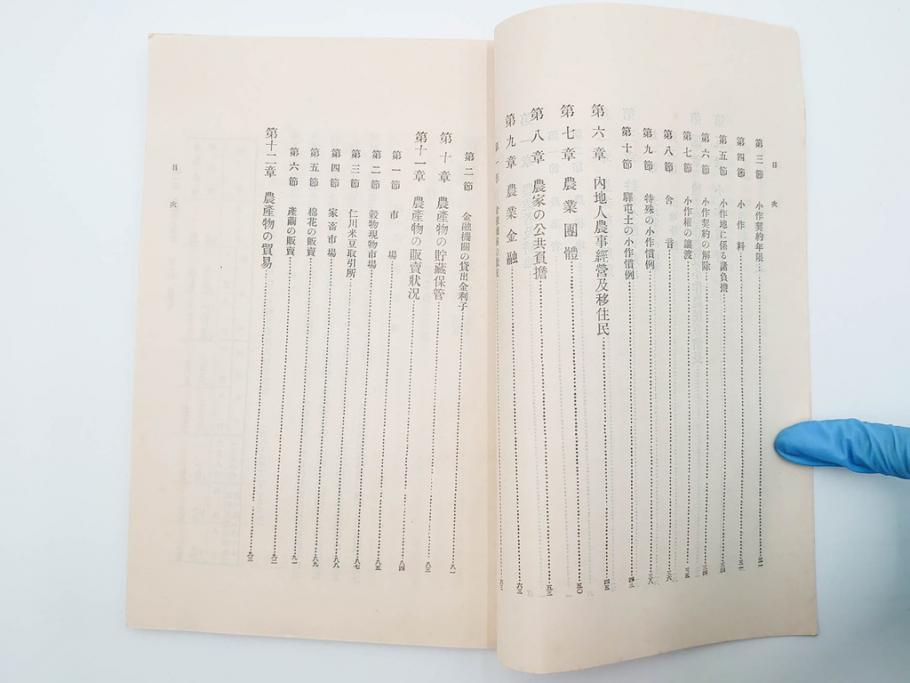 目次
第三節 小作契約年限
第四節 小作料
第五節 小作地に係る諸負擔
第六節 小作契約の解除
第七節 小作權の讓渡
第八節 舍音
第九節 特殊の小作慣例
第十節 驛屯土の小作慣例
第六章 內地人農事經營及移住民
第七章 農業團體 五〇
第八章 農家の公共負擔
第九章 農業金融 六三
第二節 金融機關の貸出金利子 八一
第十章 農產物の貯藏保管 八三
第十一章 農產物の販賣狀況 八四
第一節 市場 八四
第二節 穀物現物市場 八五
第三節 仁川米豆取引所 八七
第四節 家畜市場 八八
第五節 棉花の販賣 八九
第六節 產繭の販賣 九一
第十二章 農產物の貿易
目次